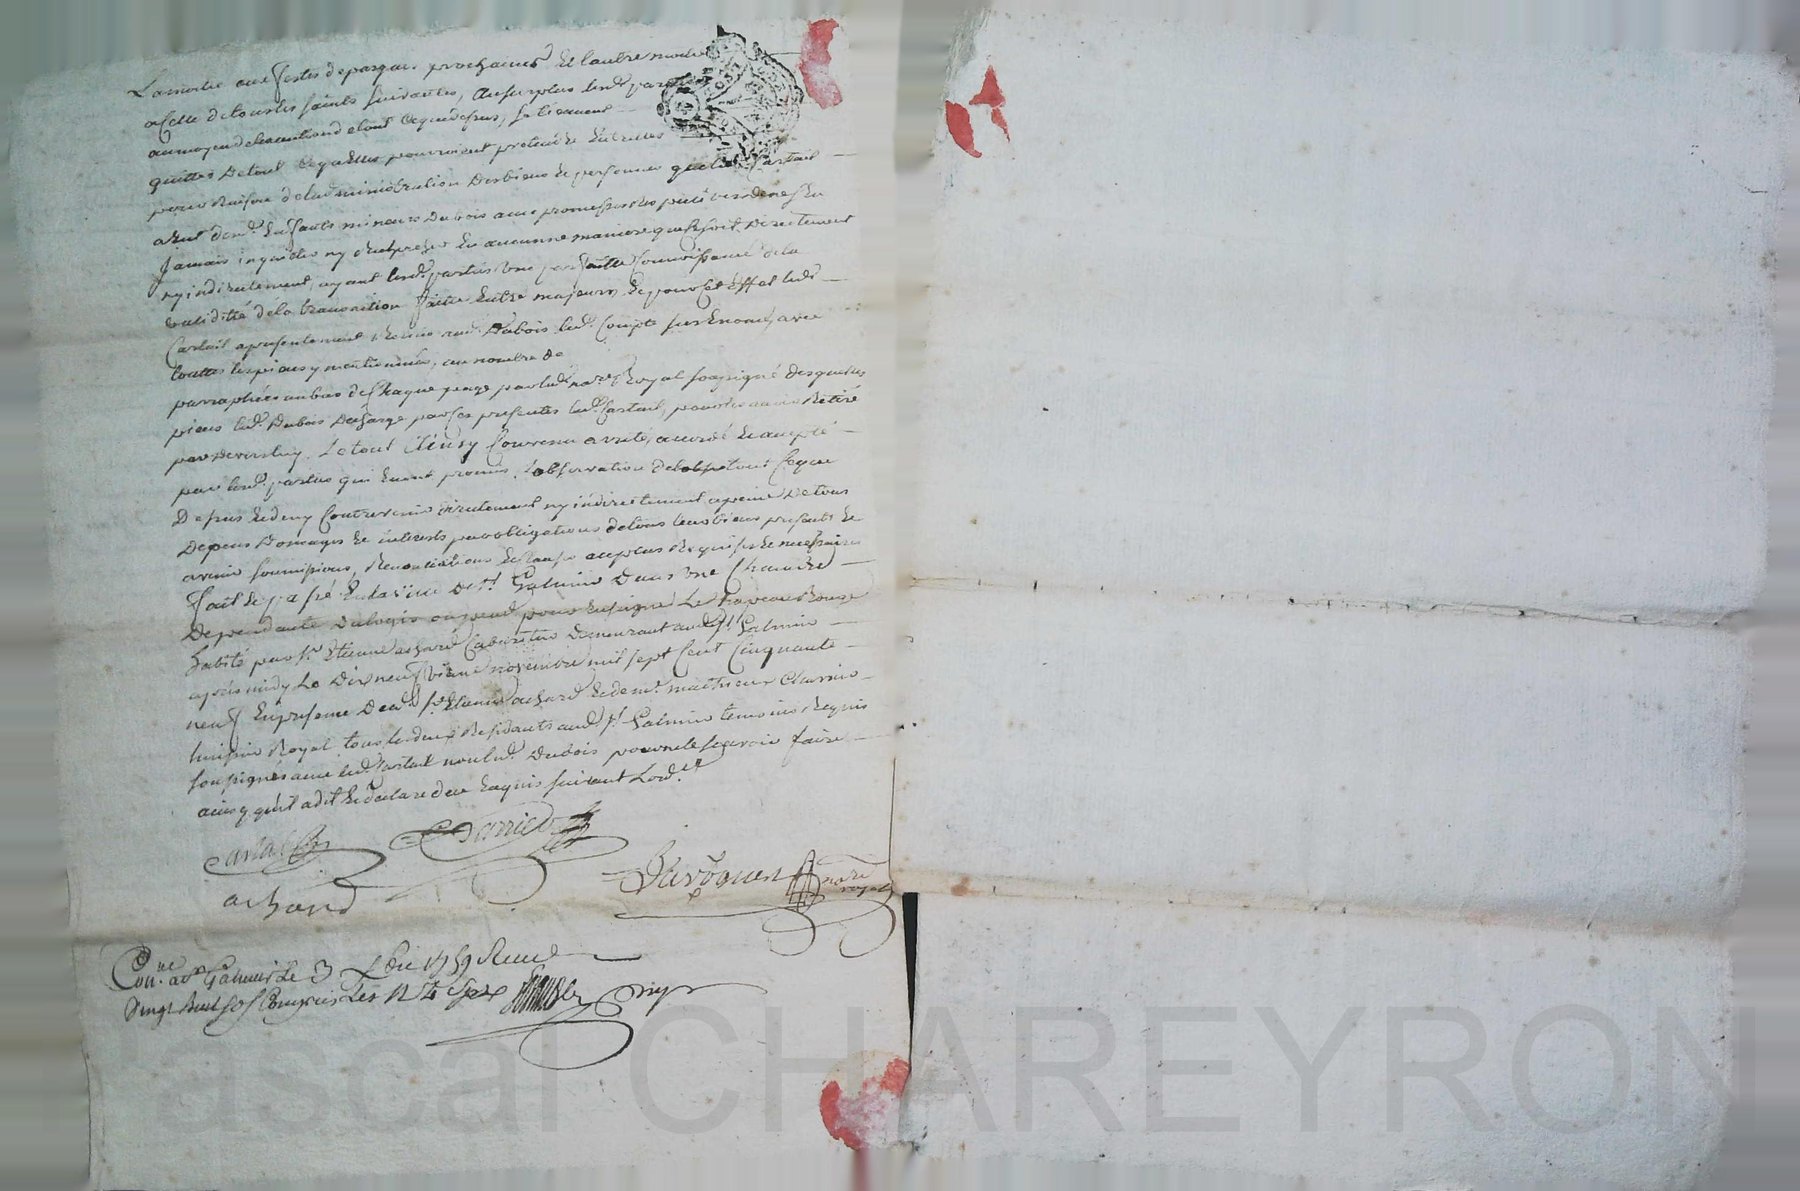 La moitié aux festes de pasques prochaines et l'autre moitié
a Celle de tous les saints suivantes, au surplus lesd. parties
au moyen de l'execution de tout ce que dessus, se tiennent
quittes de tout ce quelles pourroient pretendre entrelles
pour Raison de l'administration des biens et personnes que led. Castail
a eut dend. Enfants mineurs Dubois avec promesses de
Jamais inquietter ny Rechercher En aucunne maniere que se soit, Directement
ny indirectement, ayant lesd. parties une parfaitte connoissance de la
validitté de la transaction faitte Entre majeurs Et pour Cet Effet led.
Castail a presentement Remis aud. Dubois led. Compte susEnoncé, avec
touttes les pieces y mentionnées, au nombre de
parraphées au bas de Chaque page par led. nore. Royal soussigné desquelles
pieces led. Dubois decharge par ses presentes led. Castail, pour les avoir Retiré
par devers luy. Le tout Ainsy Convenu arreté, accordé et accepté
par lesd. parties qui En ont promis l'observation de tout Ceque
Dessus Et de ny Contrevenir directement ny indirectement a peine De tous
Depens Domages Et interests par obligations de tous leurs biens presents Et
avenir soumissions, Renonciations Et Clauses a ce plus Requises Et necessaires
fait Et passé En la ville de St. Galmier Dans une Chambre
Dependante du logis ou pend pour Enseigne Le Chapeau Rouge
habité par Sr. Etienne achard Cabaretier demeurant aud. St. Galmier
après midy Le Dix neufvieme novembre mil sept Cent Cinquante
neuf En presence dud. Sr. Etienne achard Et de me. mathieu Charrier
huissier Royal tous les deux Residants aud. St. Galmier temoins Requis
soussignés avec led. Castail non led. Dubois pour ne le scavoir faire
ainsy qu'il a dit Et declaré de ce Enquis suivant Lord.ce
Castail
achard
Javoguen nore royal
Con.lé a St. Galmier le 3 Xbre 1759 Receu
Vingt huit sols Compris les
Pascal CHAREYRON